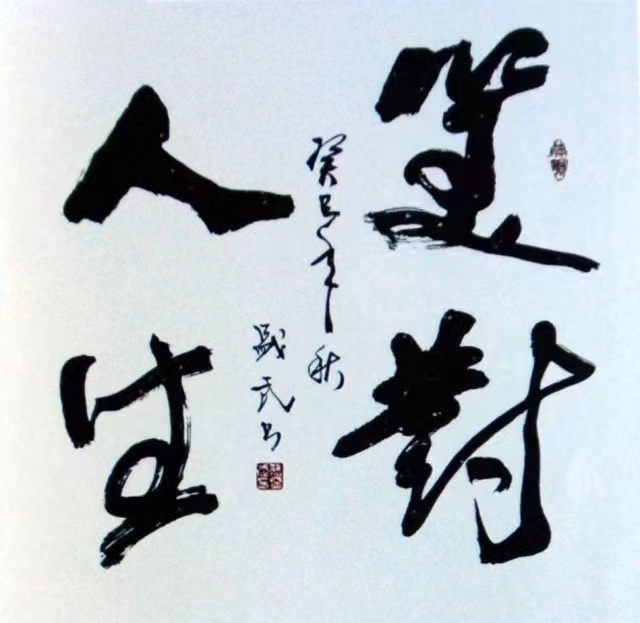 笑對
人生
癸巳年秋
盛武书